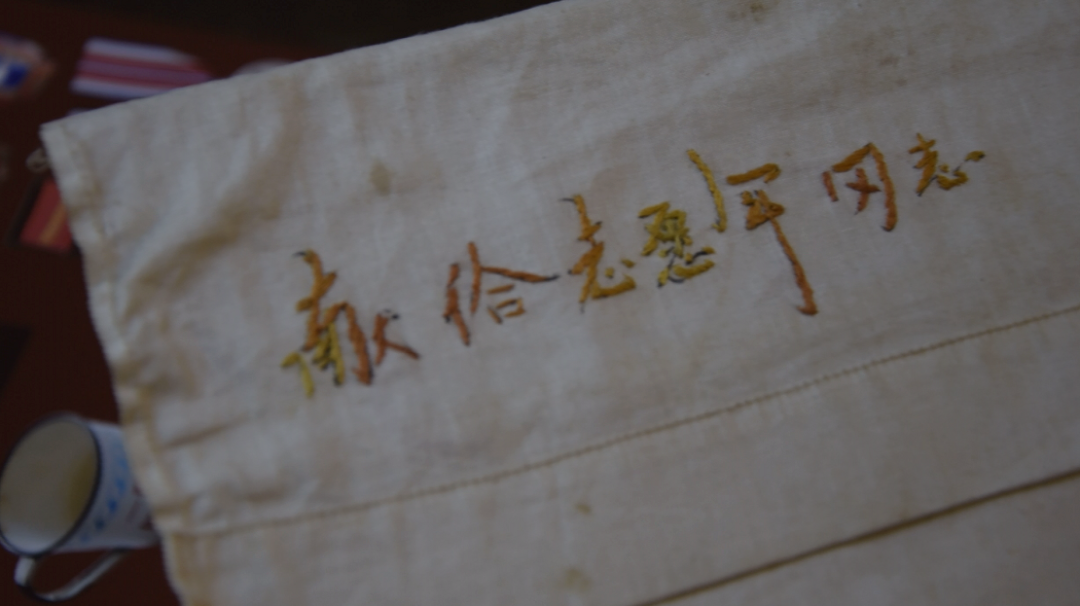 献给志愿军同志